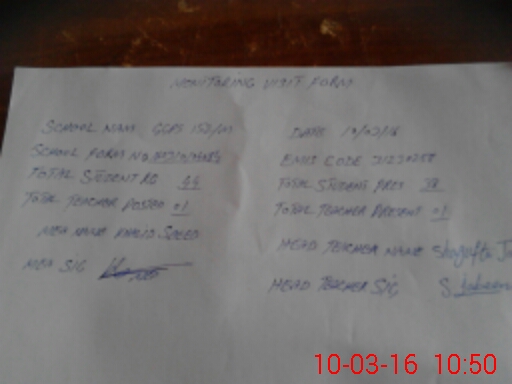 MONITORING VISIT FORM
SCHOOL NAM GGPS 152/M DATE 10/03/16
SCHOOL FORM NO. EMIS CODE 31230258
TOTAL STUDENT RG 44 TOTAL STUDENT PRES 38
TOTAL TEACHER POSTED 01 TOTAL TEACHER PRESENT 01
MEA NAME KHALID SAEED HEAD TEACHER NAME Shagufta
MEA SIG HEAD TEACHER SIG
10-03-16 10:50